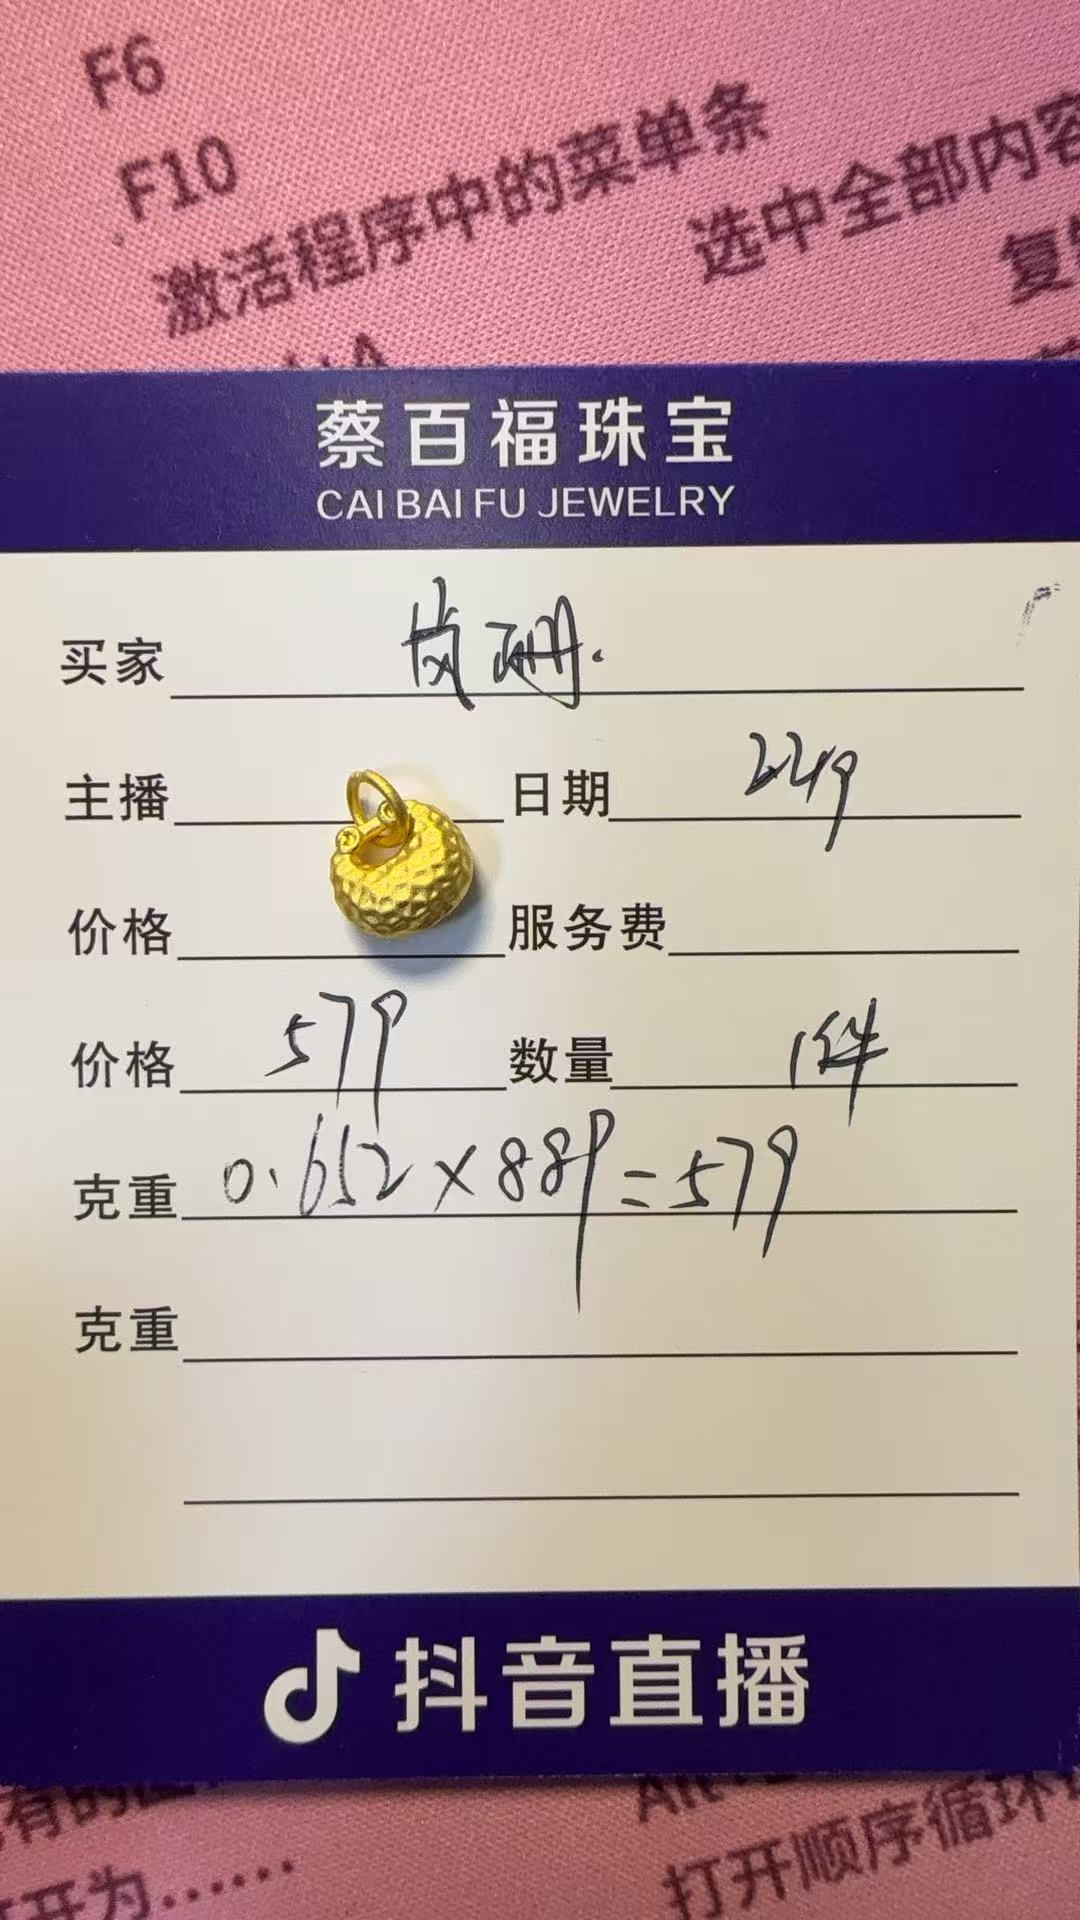 F6
F10
激活程序中的菜单条
选中全部内容
蔡百福珠宝
CAI BAI FU JEWELRY
买家 岚珊.
主播 日期 229
价格 服务费
价格 579 数量 1件
克重 0.652×889=579
克重
抖音直播
打开顺序循环
开为……